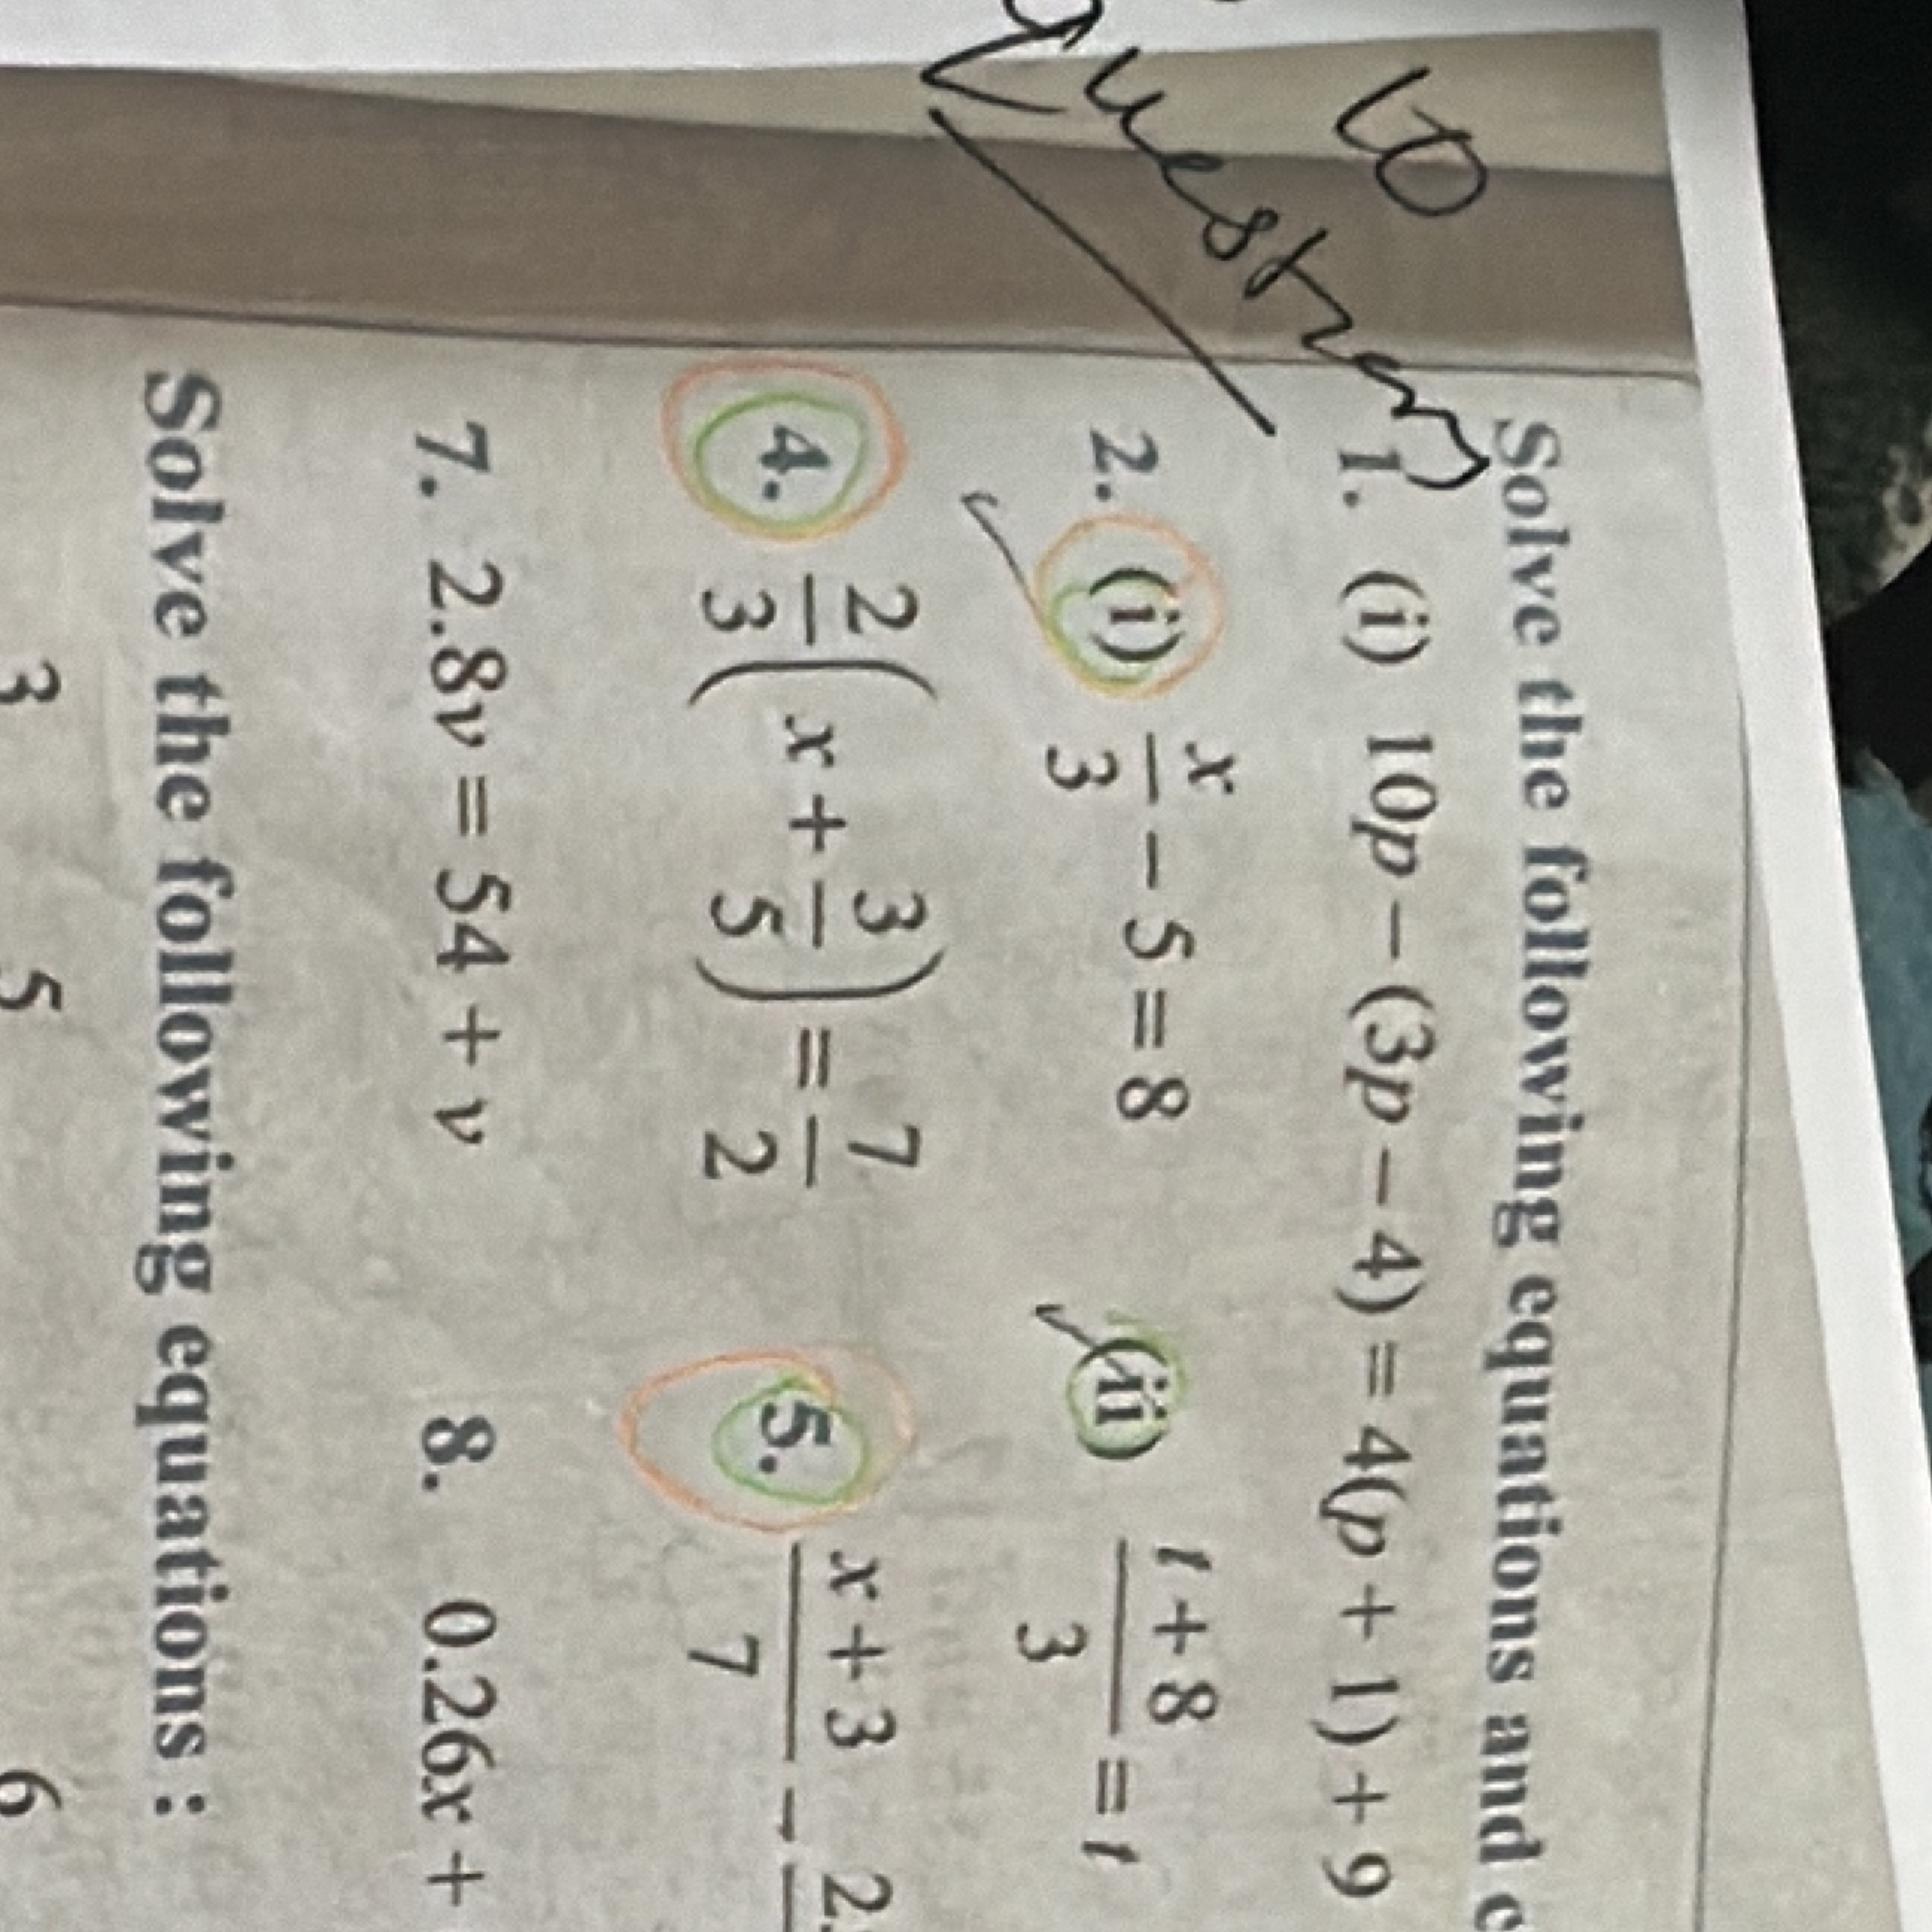 to
Question
Solve the following equations and
1. (i) 10p − (3p − 4) = 4(p + 1) + 9
2. (i) x/3 − 5 = 8 (ii) t + 8/3 = t
4. 2/3(x + 3/5) = 7/2 5. x + 3/7 − 2
7. 2.8v = 54 + v 8. 0.26x +
Solve the following equations :
3 5 6